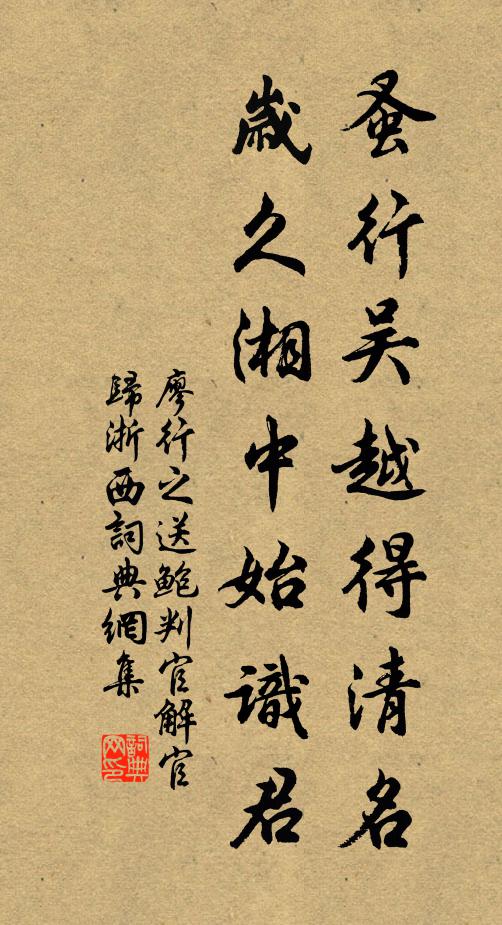 蚤行吴越得清名
歲久湘中始識君
廖行之送鮑判官解官
歸浙西詞典網集
詞典
网印